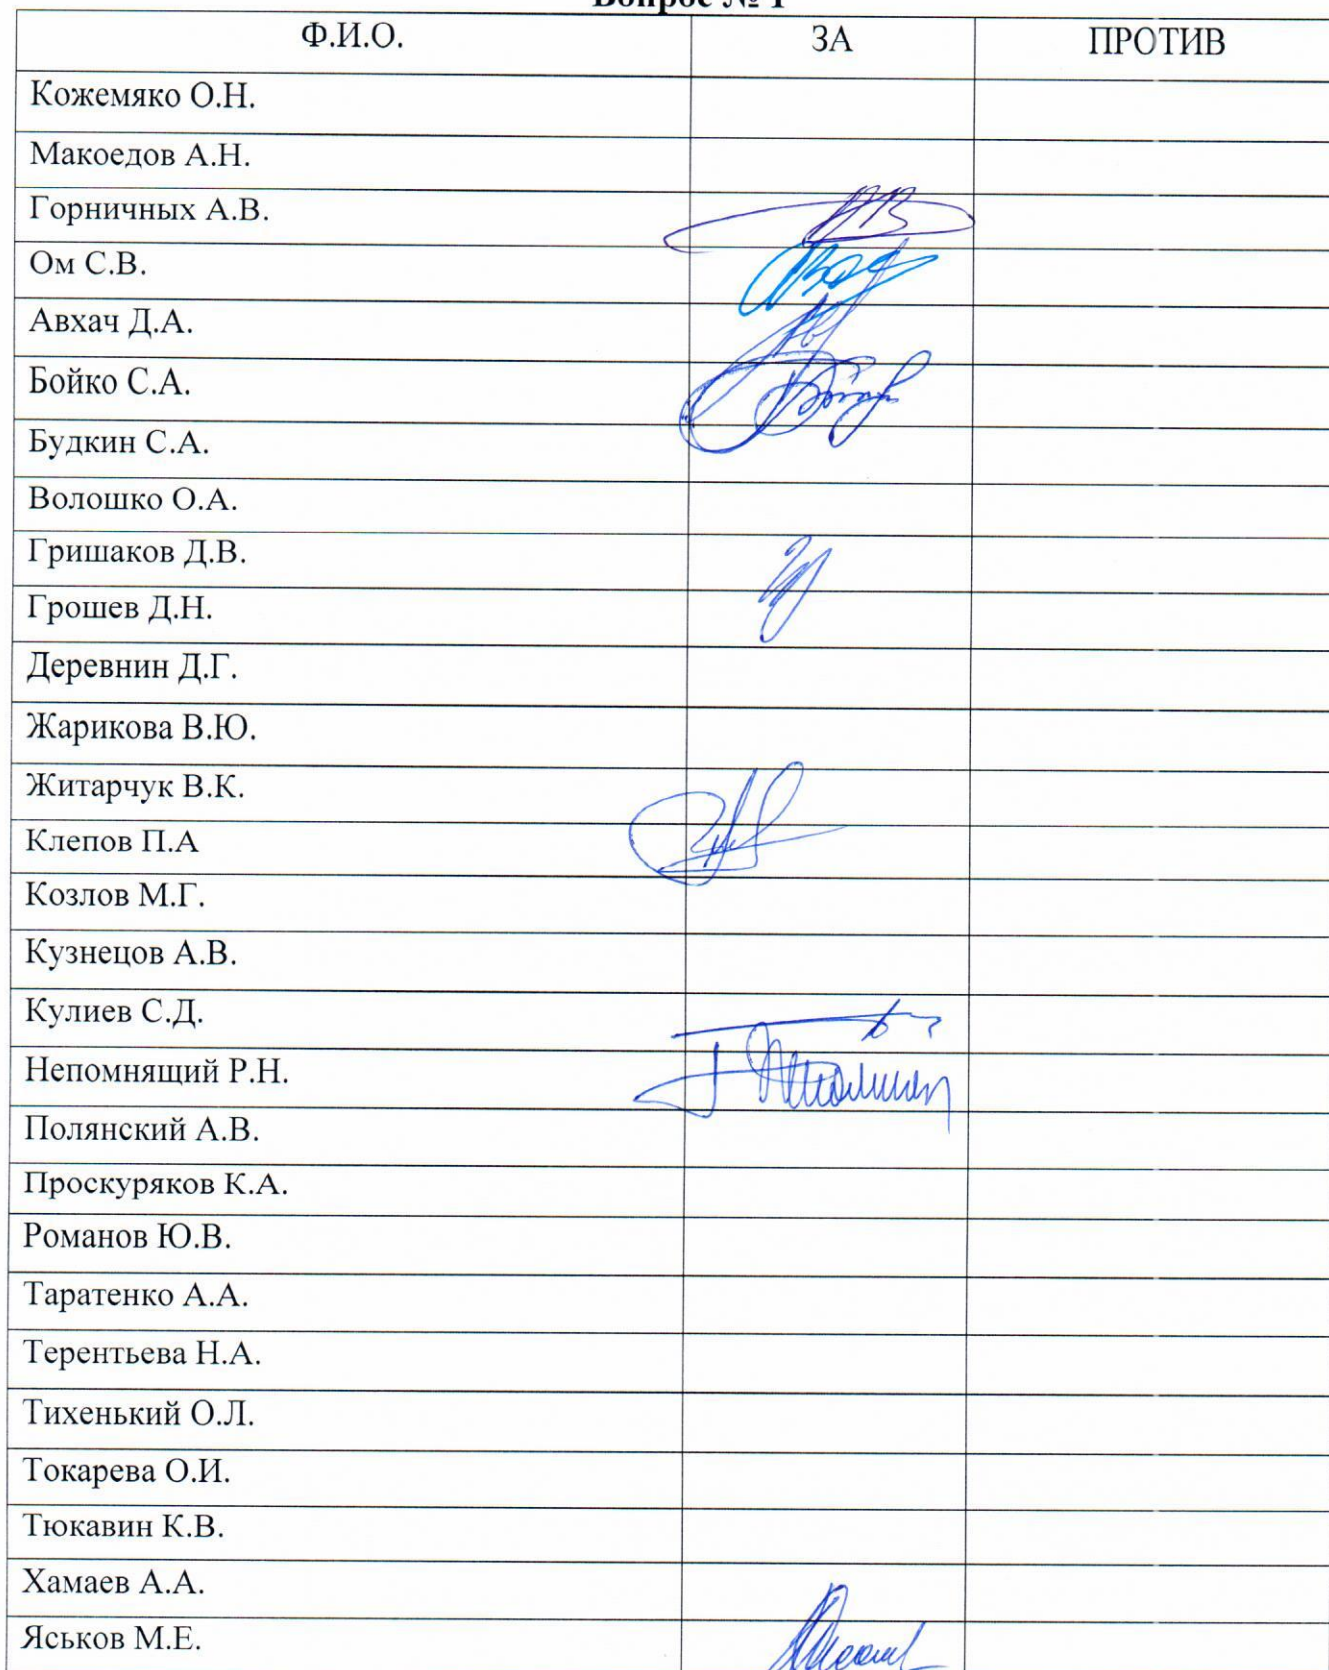 Вопрос № 1
Ф.И.О. ЗА ПРОТИВ
Кожемяко О.Н.
Макоедов А.Н.
Горничных А.В.
Ом С.В.
Авхач Д.А.
Бойко С.А.
Будкин С.А.
Волошко О.А.
Гришаков Д.В.
Грошев Д.Н.
Деревнин Д.Г.
Жарикова В.Ю.
Житарчук В.К.
Клепов П.А
Козлов М.Г.
Кузнецов А.В.
Кулиев С.Д.
Непомнящий Р.Н.
Полянский А.В.
Проскуряков К.А.
Романов Ю.В.
Таратенко А.А.
Терентьева Н.А.
Тихенький О.Л.
Токарева О.И.
Тюкавин К.В.
Хамаев А.А.
Яськов М.Е.